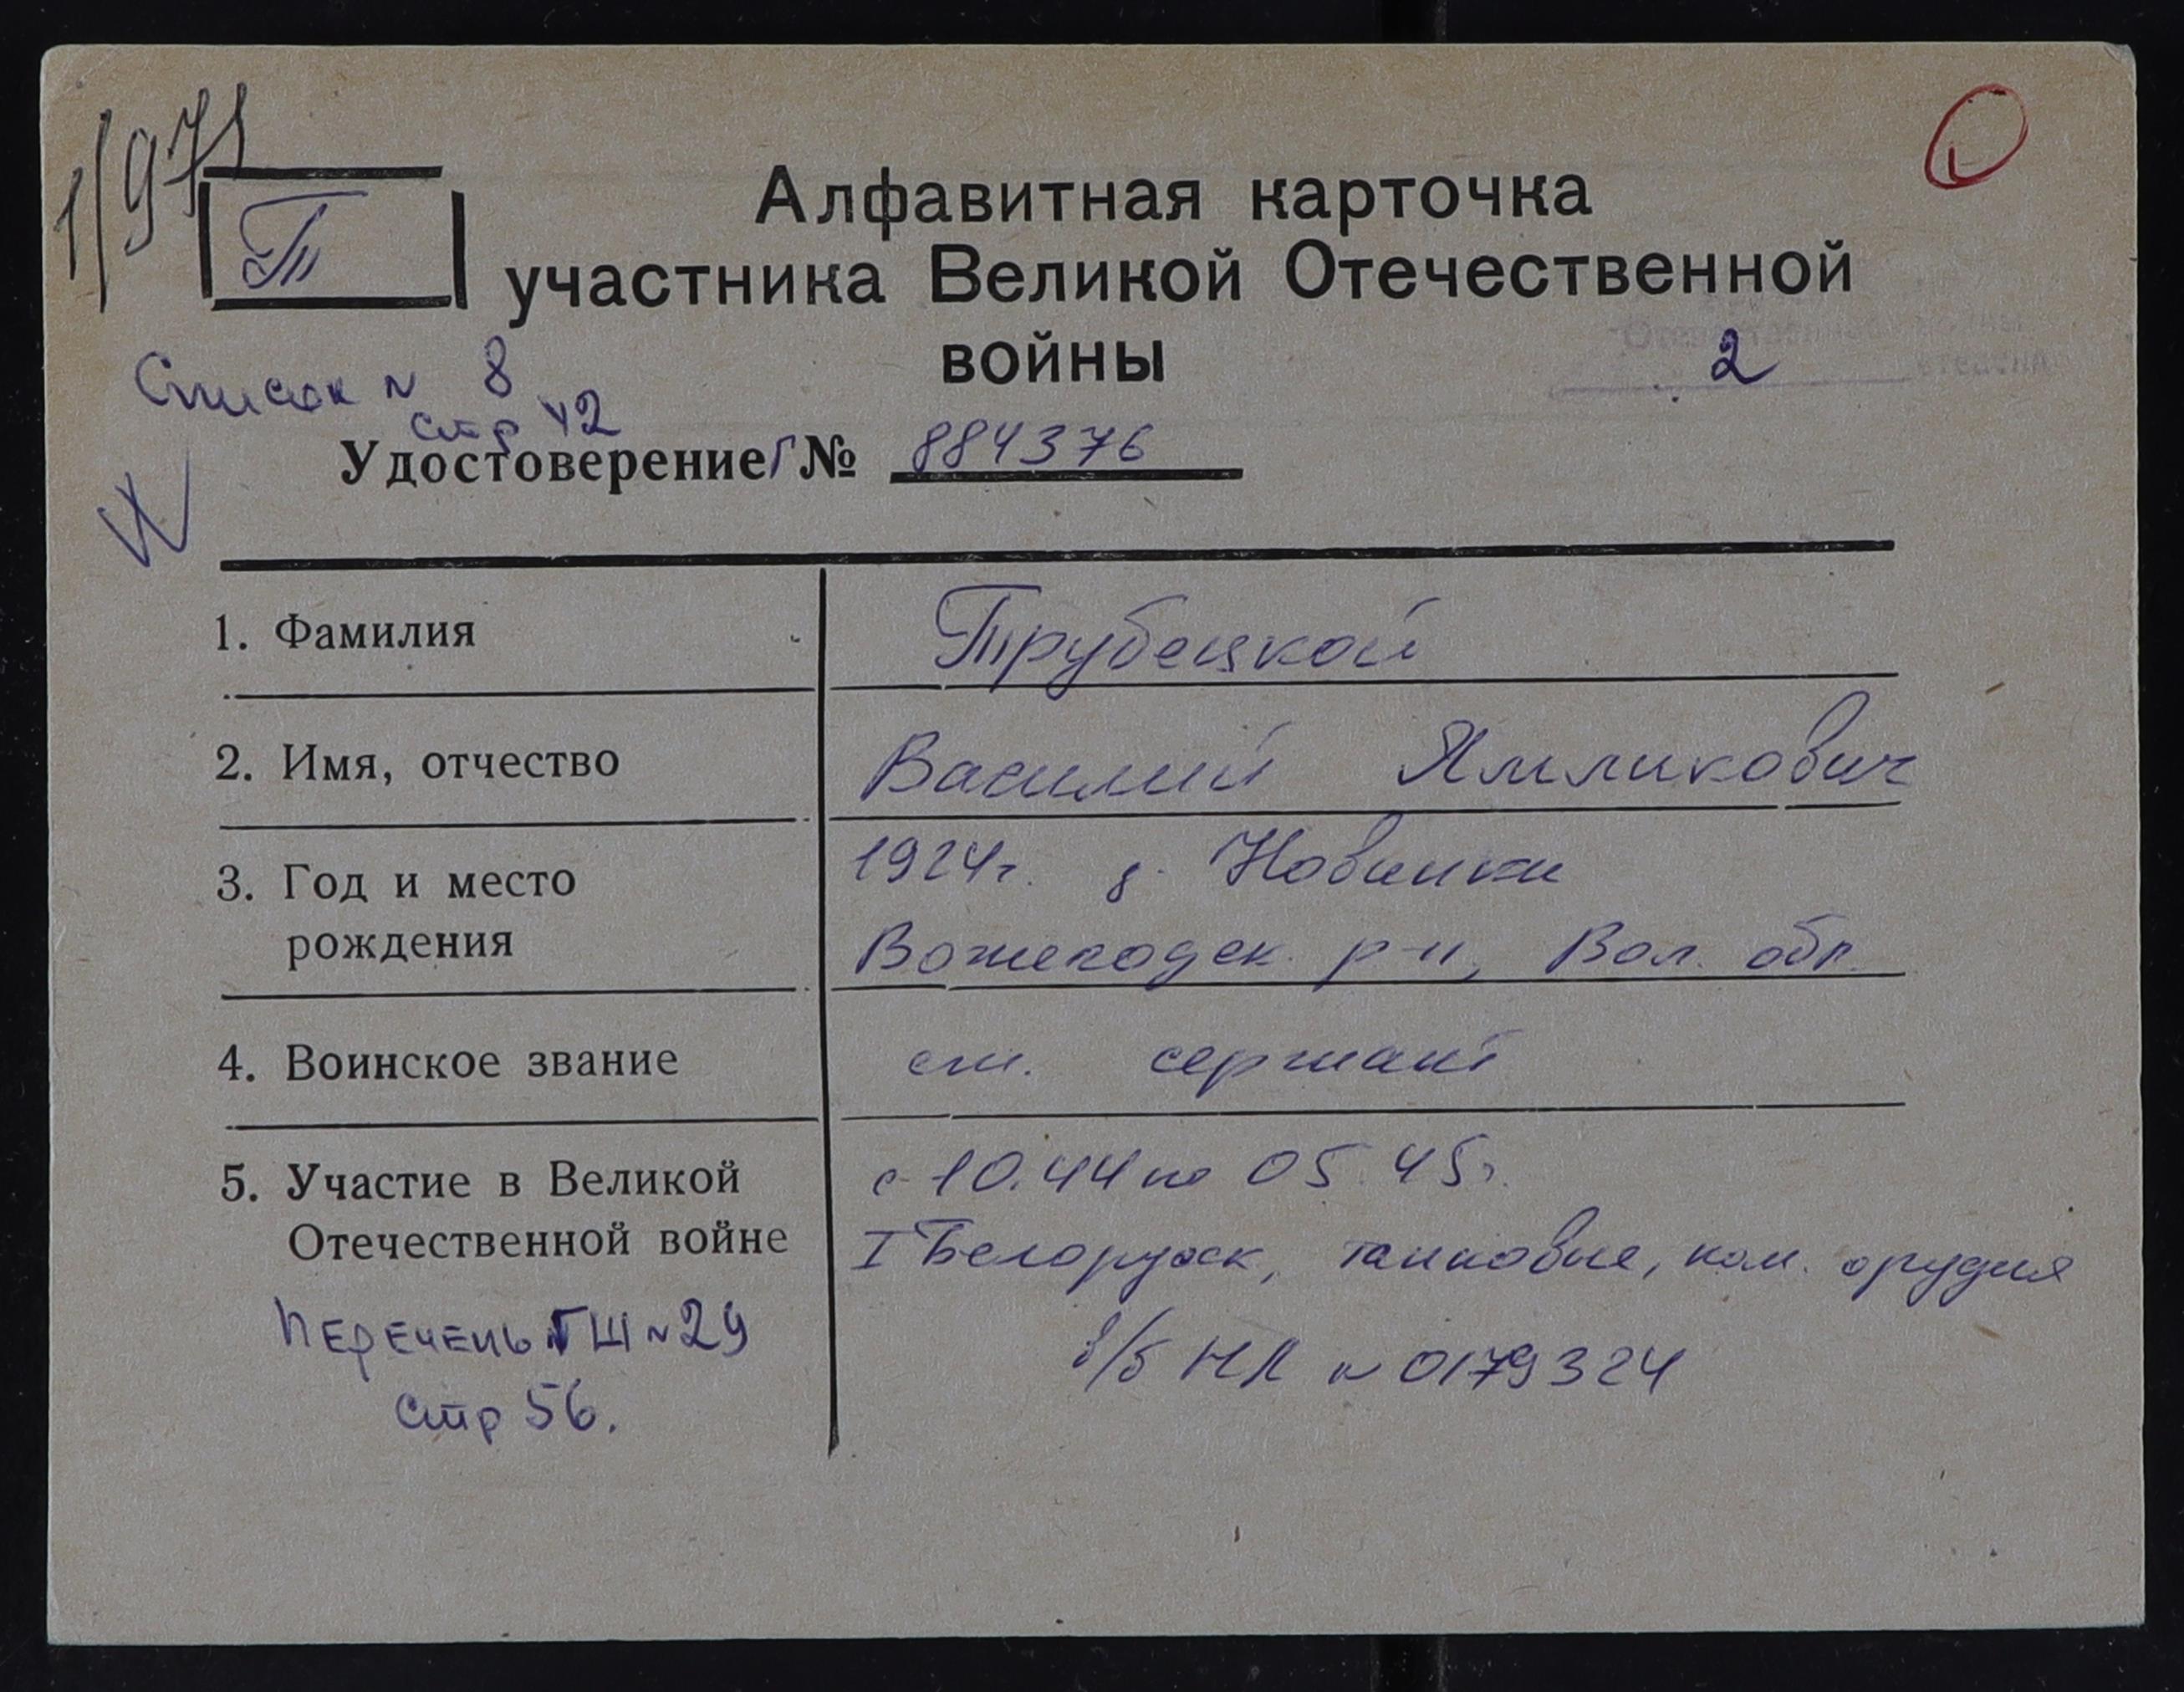 1/971
Т
Алфавитная карточка
участника Великой Отечественной
войны
Отечественной войны
2 степени
Список N 8
стр 42
Удостоверение Г № 884376
1. Фамилия
Трубецкой
2. Имя, отчество
Василий Ямликович
3. Год и место
рождения
1924г. д. Новинки
Вожегодск. р-н, Вол. обл.
4. Воинское звание
ст. сержант
5. Участие в Великой
Отечественной войне
с 10.44 по 05.45г.
I Белорусск, танковые, ком. орудия
в/б НЛ N 0179324
ПЕРЕЧЕНЬ ГШ N 29
Стр 56.